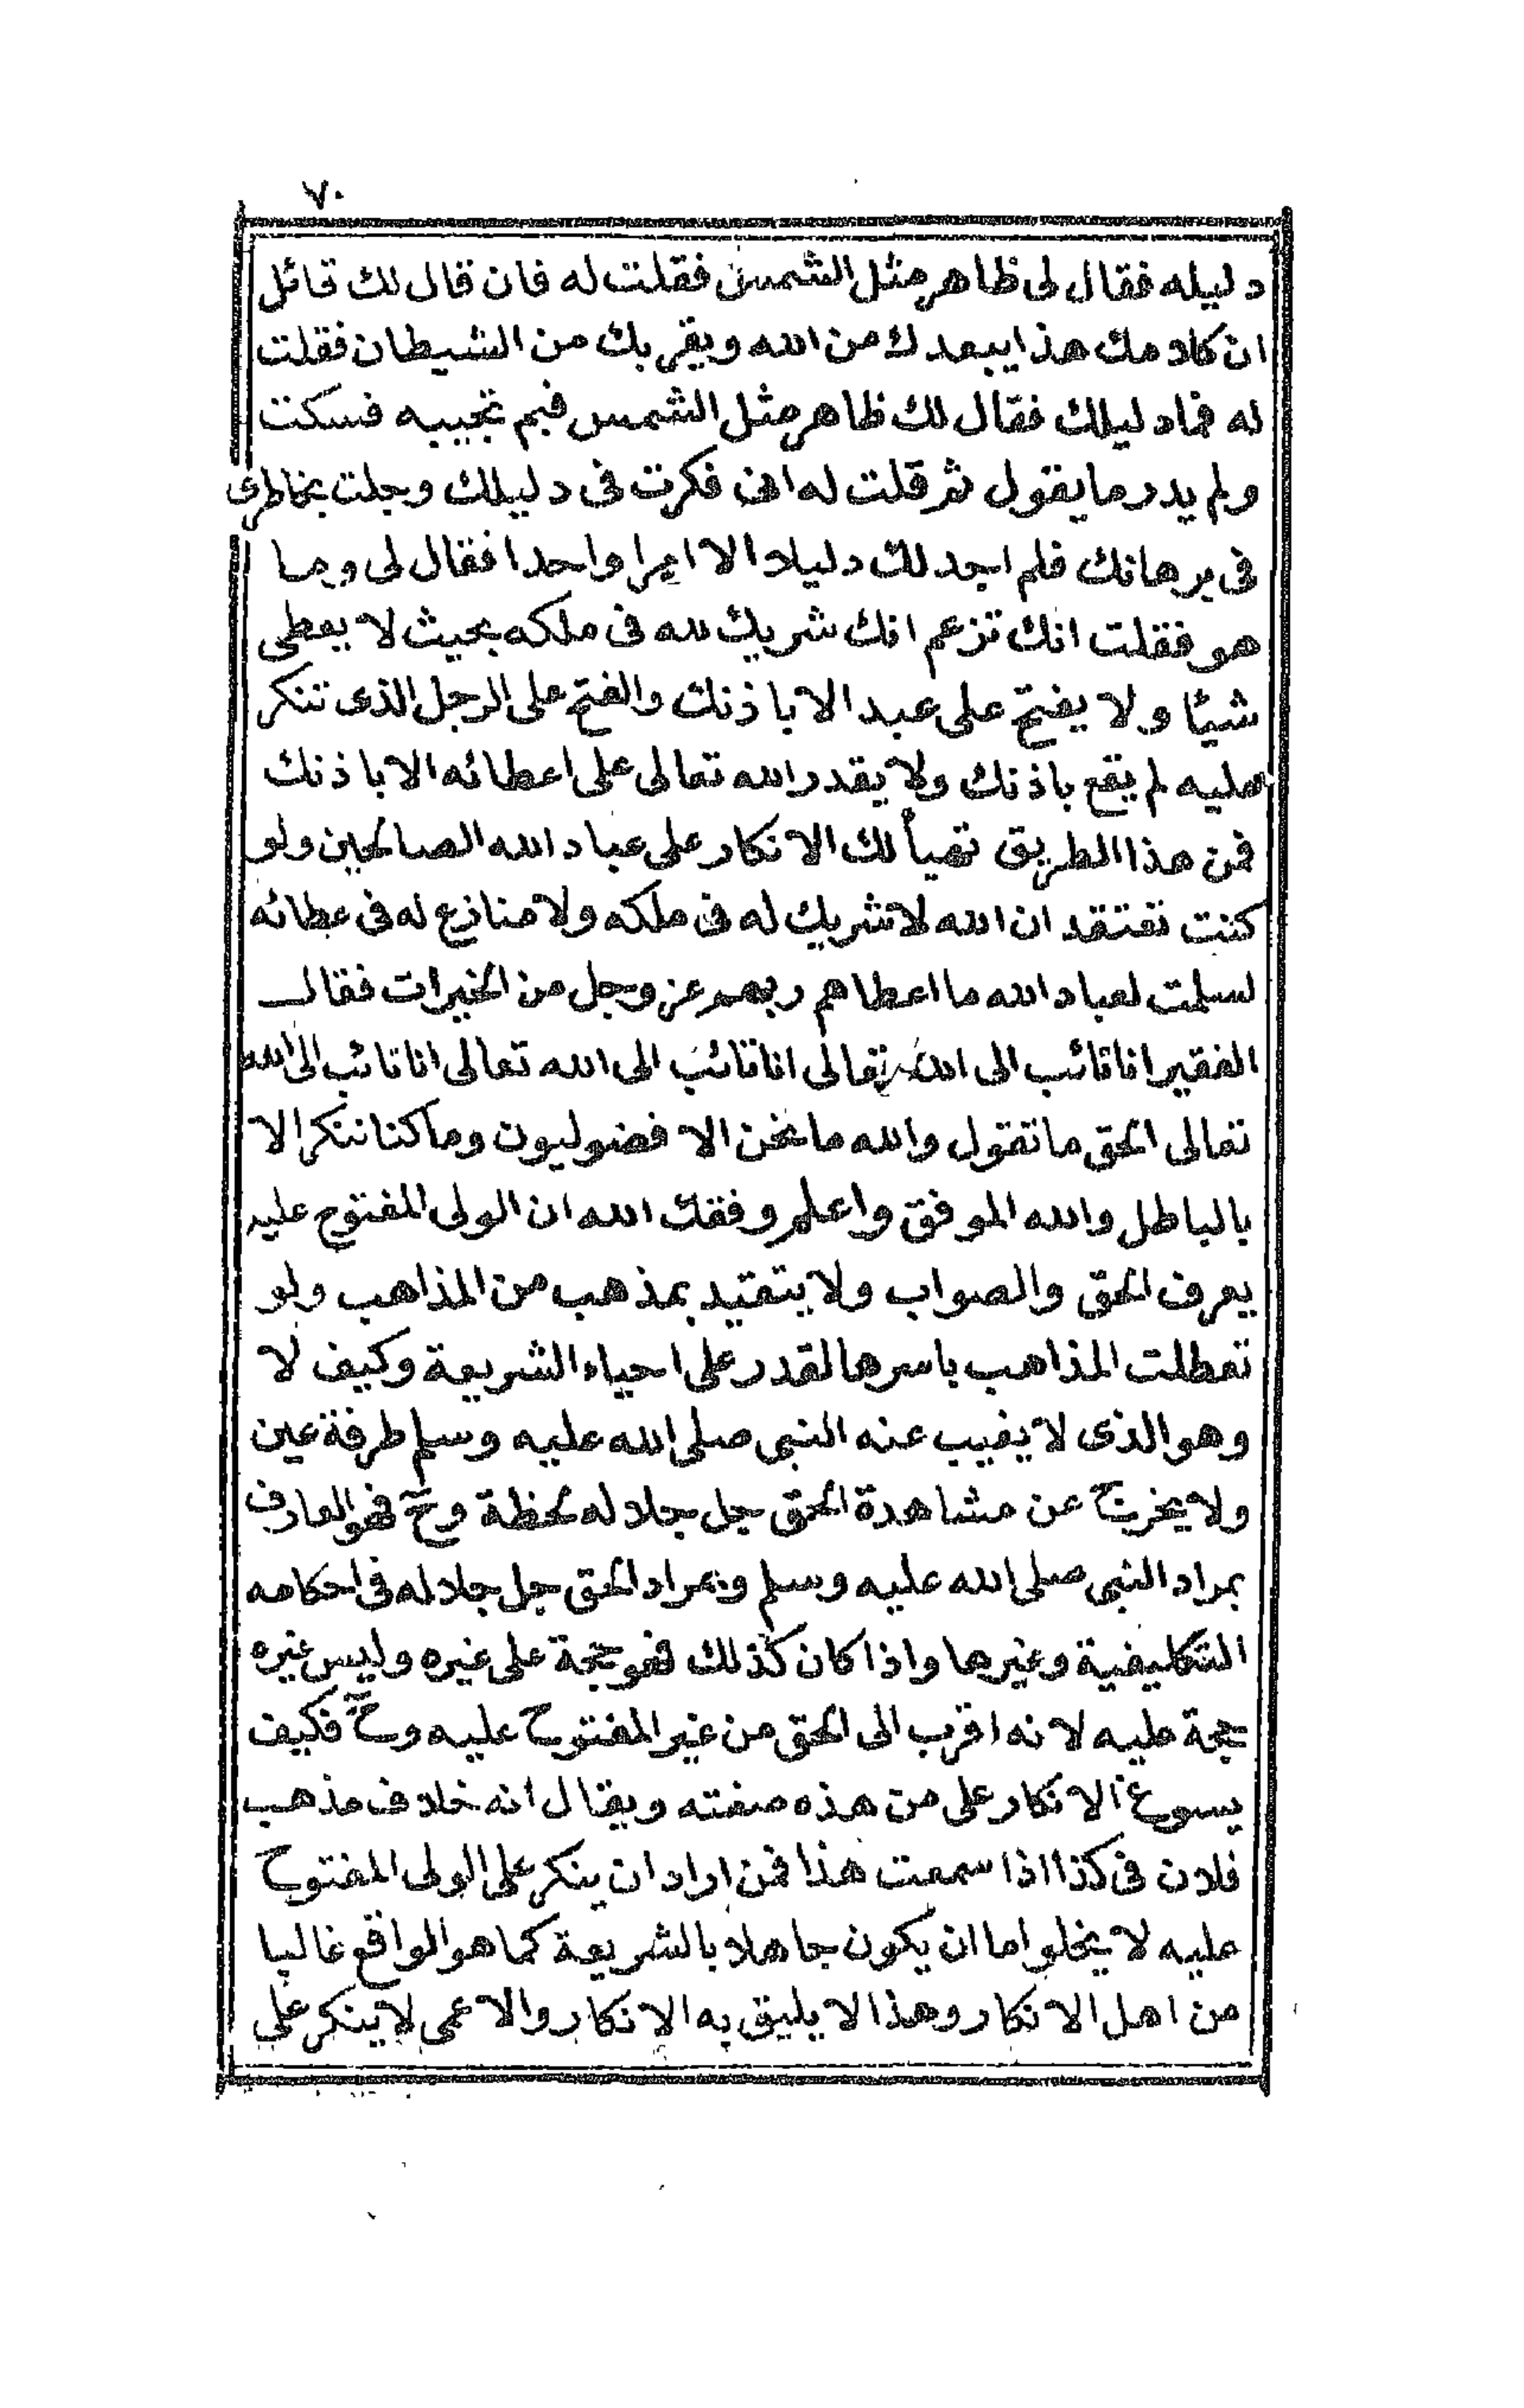 ٧٠
دليله فقال لى ظاهر مثل الشمس فقلت له فان قال لك قائل
ان كلامك هذا يبعدك من الله ويقربك من الشيطان فقلت
له فما دليلك فقال لك ظاهر مثل الشمس فبم تجيبه فسكت
ولم يدر ما يقول ثم قلت له انى فكرت فى دليلك وجلت بخاطرى
فى برهانك فلم اجد لك دليلا الا امرا واحدا فقال لى وما
هو فقلت انك تزعم انك شريك لله فى ملكه بحيث لا يعطى
شيئا ولا يفتح على عبد الا باذنك والفتح على الرجل الذى تنكر
عليه لم يقع باذنك ولا يقدر الله تعالى على اعطائه الا باذنك
فمن هذا الطريق تهيأ لك الانكار على عباد الله الصالحين ولو
كنت تعتقد ان الله لا شريك له فى ملكه ولا منازع له فى عطائه
لسلمت لعباد الله ما اعطاهم ربهم عز وجل من الخيرات فقال
الفقير انا تائب الى الله تعالى انا تائب الى الله تعالى انا تائب الى الله
تعالى الحق ما تقول والله ما نحن الا فضوليون وما كنا ننكر الا
بالباطل والله الموفق واعلم وفقك الله ان الولى المفتوح عليه
يعرف الحق والصواب ولا يتقيد بمذهب من المذاهب ولو
تعطلت المذاهب باسرها لقدر على احياء الشريعة وكيف لا
وهو الذى لا يغيب عنه النبى صلى الله عليه وسلم طرفة عين
ولا يخرج عن مشاهدة الحق جل جلاله لحظة وح فهو العارف
بمراد النبى صلى الله عليه وسلم وبمراد الحق جل جلاله فى احكامه
التكليفية وغيرها واذا كان كذلك فهو حجة على غيره وليس غيره
حجة عليه لانه اقرب الى الحق من غير المفتوح عليه وح فكيف
يسوغ الانكار على من هذه صفته ويقال انه خلاف مذهب
فلان فى كذا اذا سمعت هذا فمن اراد ان ينكر على الولى المفتوح
عليه لا يخلو اما ان يكون جاهلا بالشريعة كما هو الواقع غالبا
من اهل الانكار وهذا لا يليق به الانكار والاعمى لا ينكر على